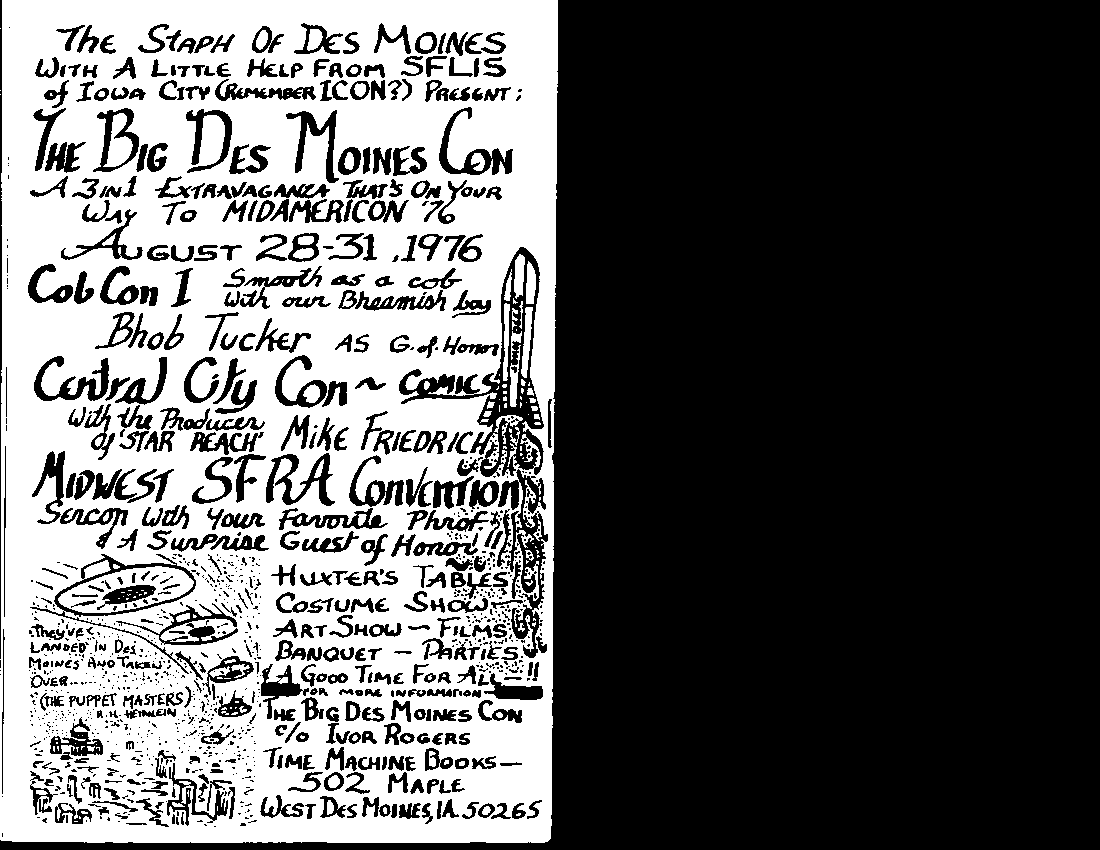 The Staph Of Des Moines
With A Little Help From SFLIS
of Iowa City (Remember ICON?) Present:
The Big Des Moines Con
A 3 in 1 Extravaganza That's On Your
Way To MIDAMERICON '76
August 28-31, 1976
Cob Con I
Smooth as a cob
With our Bheamish boy
Bhob Tucker AS G. of. Honor
Central City Con ~ Comics
With the Producer
of 'STAR REACH' Mike Friedrich
Midwest SFRA Convention
Sercon With Your Favorite Phrof.
& A Surprise Guest of Honor!!
Huxter's Tables
Costume Show —
Art Show — Films
Banquet — Parties
& A Good Time For All — !!
They've
Landed in Des
Moines And Taken
Over......
(THE PUPPET MASTERS)
R. H. HEINLEIN
FOR MORE INFORMATION
The Big Des Moines Con
c/o Ivor Rogers
Time Machine Books —
502 Maple
West Des Moines, IA. 50265